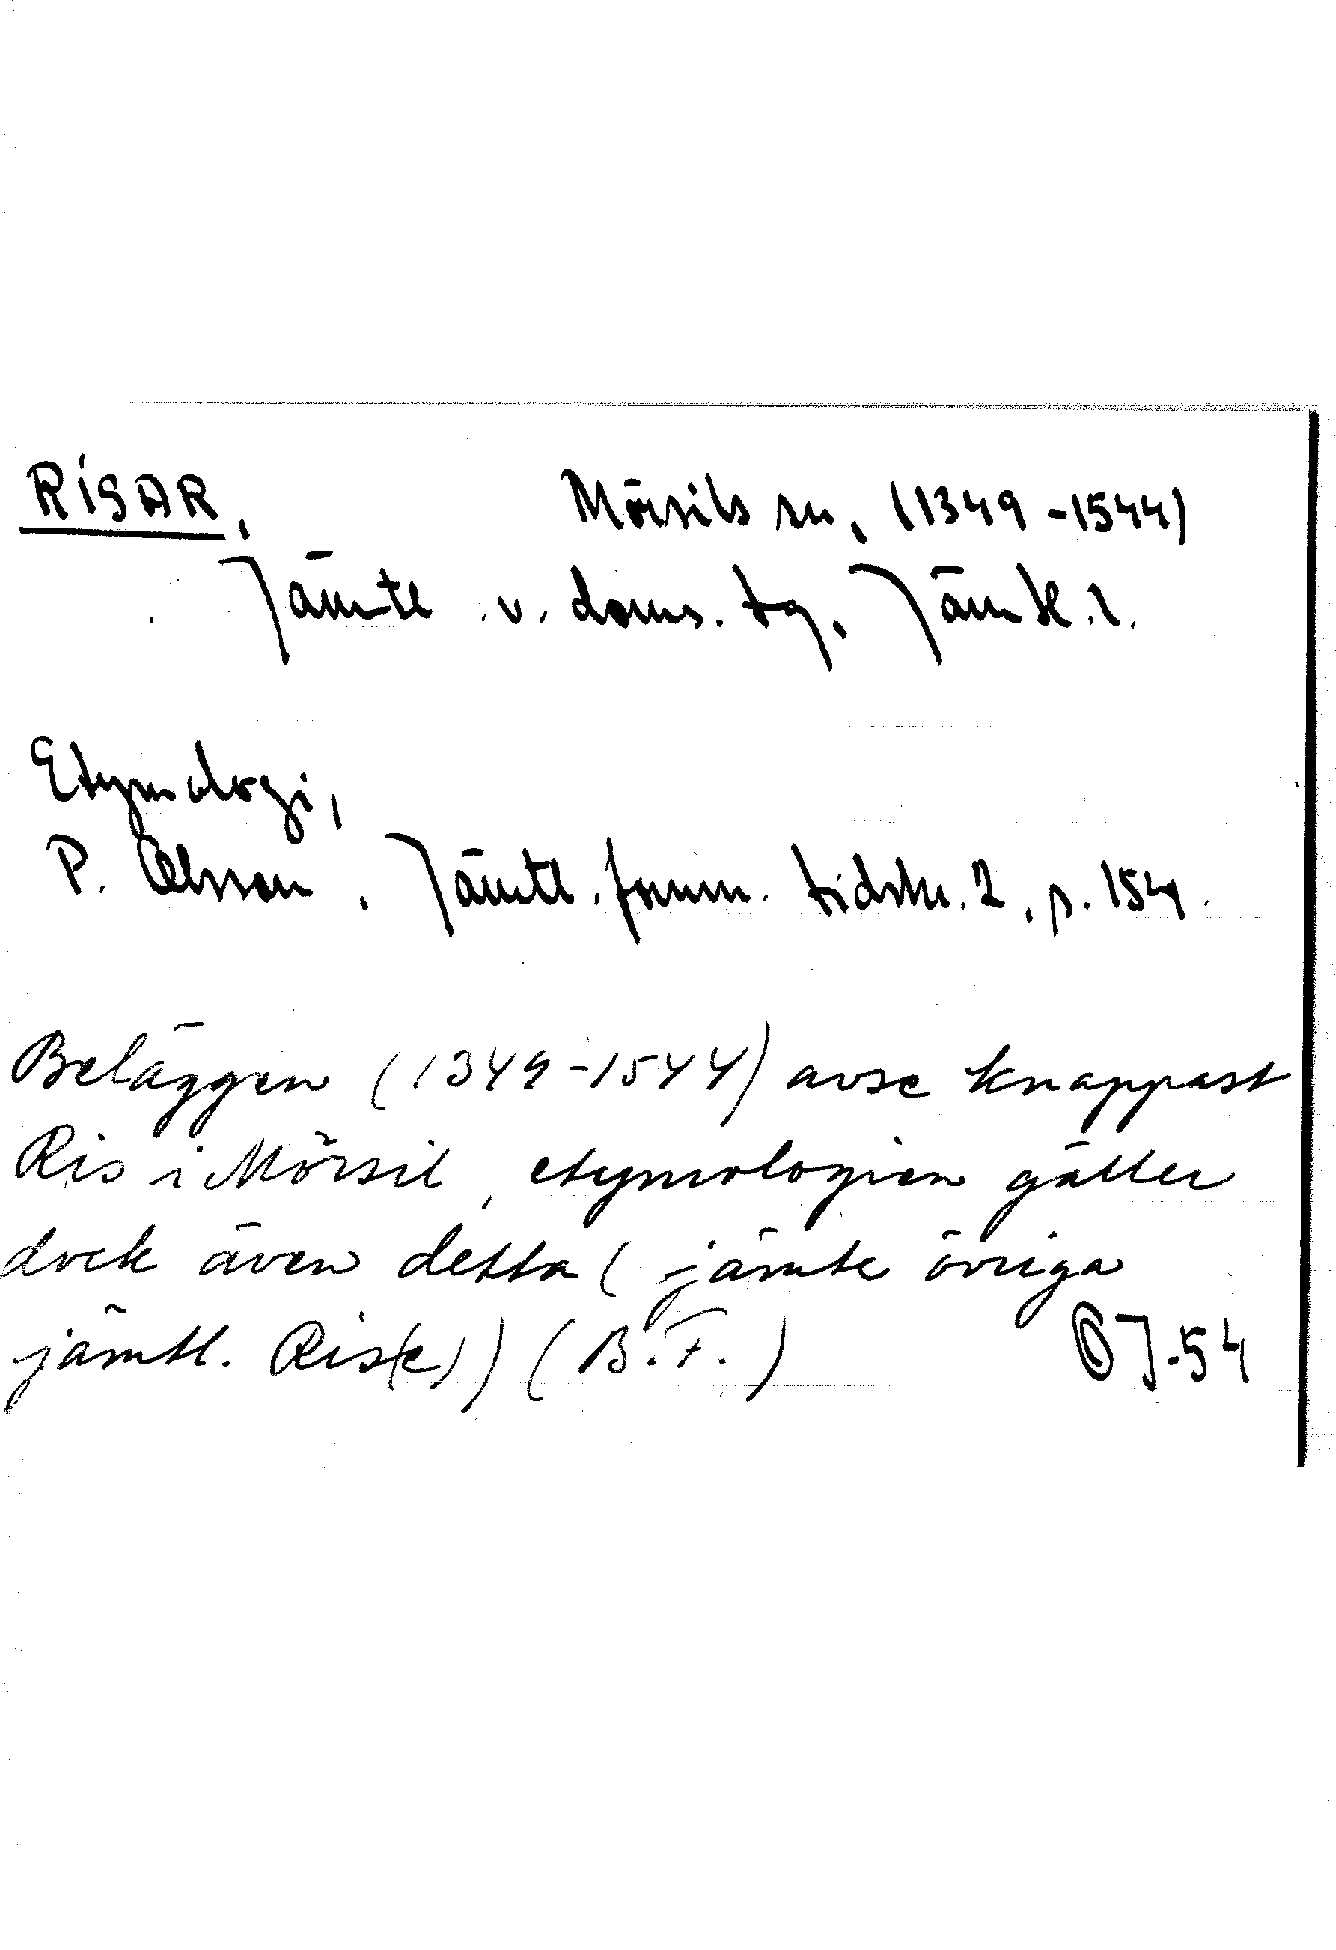 RISAR, Mörsils sn, (1349-1544)
Jämtl. v. doms. tg, Jämtl. l.
Etymologi,
P. Olsson, Jämtl. fornm. tidskr. 2, s. 154.
Beläggen (1349-1544) avse knappast
Ris i Mörsil, etymologien gäller
dock även detta (jämte övriga
jämtl. Ris(e)) (B.F.) OJ-54